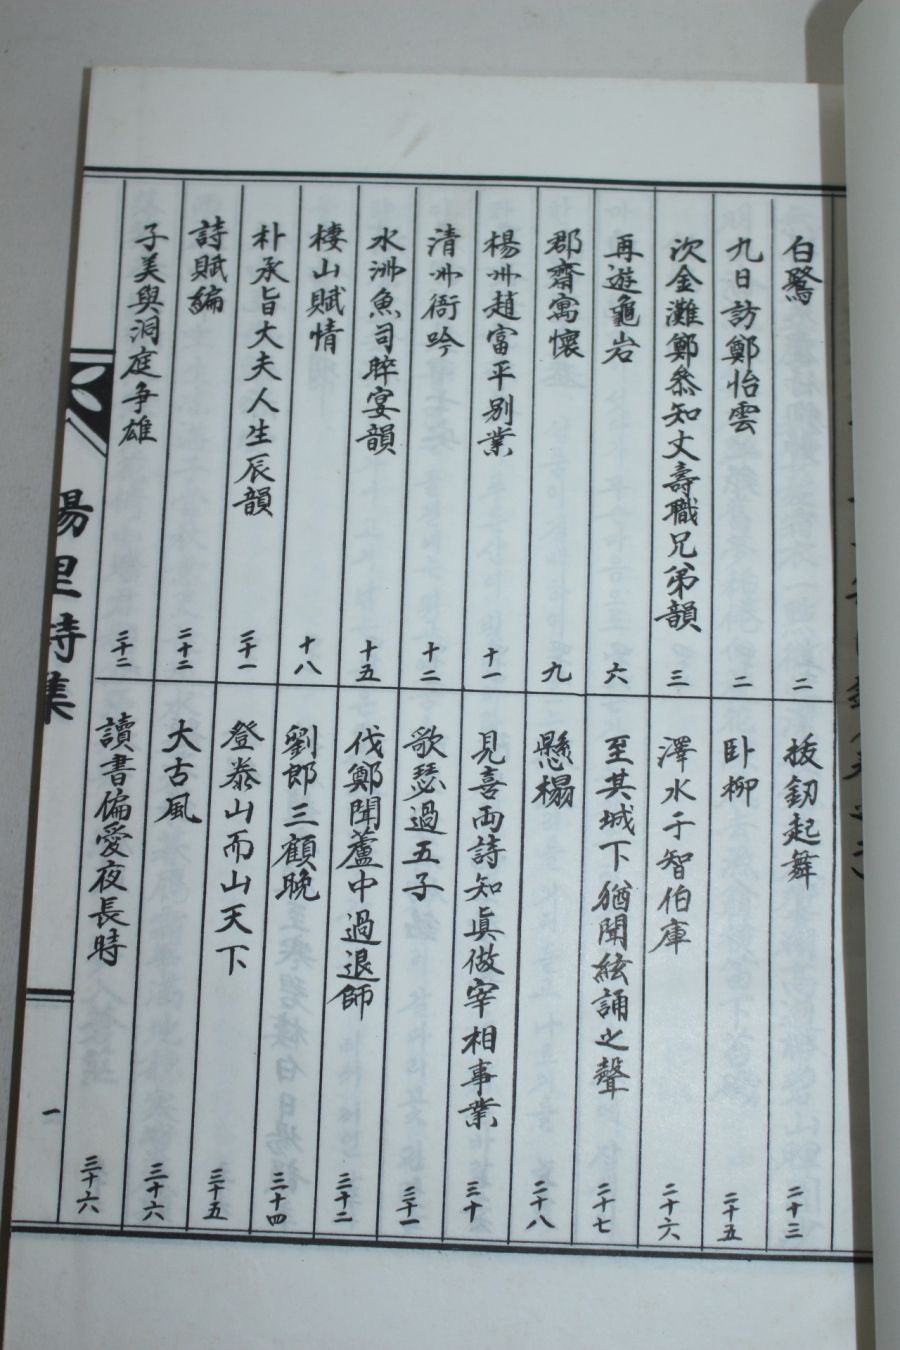 白鷺 二
九日訪鄭怡雲 二
次金灘鄭叅知丈壽職兄弟韻 三
再遊龜岩 六
郡齋寓懷 九
楊州趙富平别業 十一
清州衙吟 十二
水洲魚司晬宴韻 十五
棲山賦情 十八
朴承旨大夫人生辰韻 二十一
詩賦編 二十二
子美與洞庭争雄 二十二
拔釼起舞 二十三
卧柳 二十五
澤水于智伯庫 二十六
至其城下猶聞絃誦之聲 二十七
懸榻 二十八
見喜雨詩知眞做宰相事業 三十
歌瑟過五子 三十一
伐鄭聞蘆中過退師 三十二
劉郎三顧晚 三十四
登泰山而山天下 三十五
大古風 三十六
讀書偏愛夜長時 三十六
陽里詩集
一